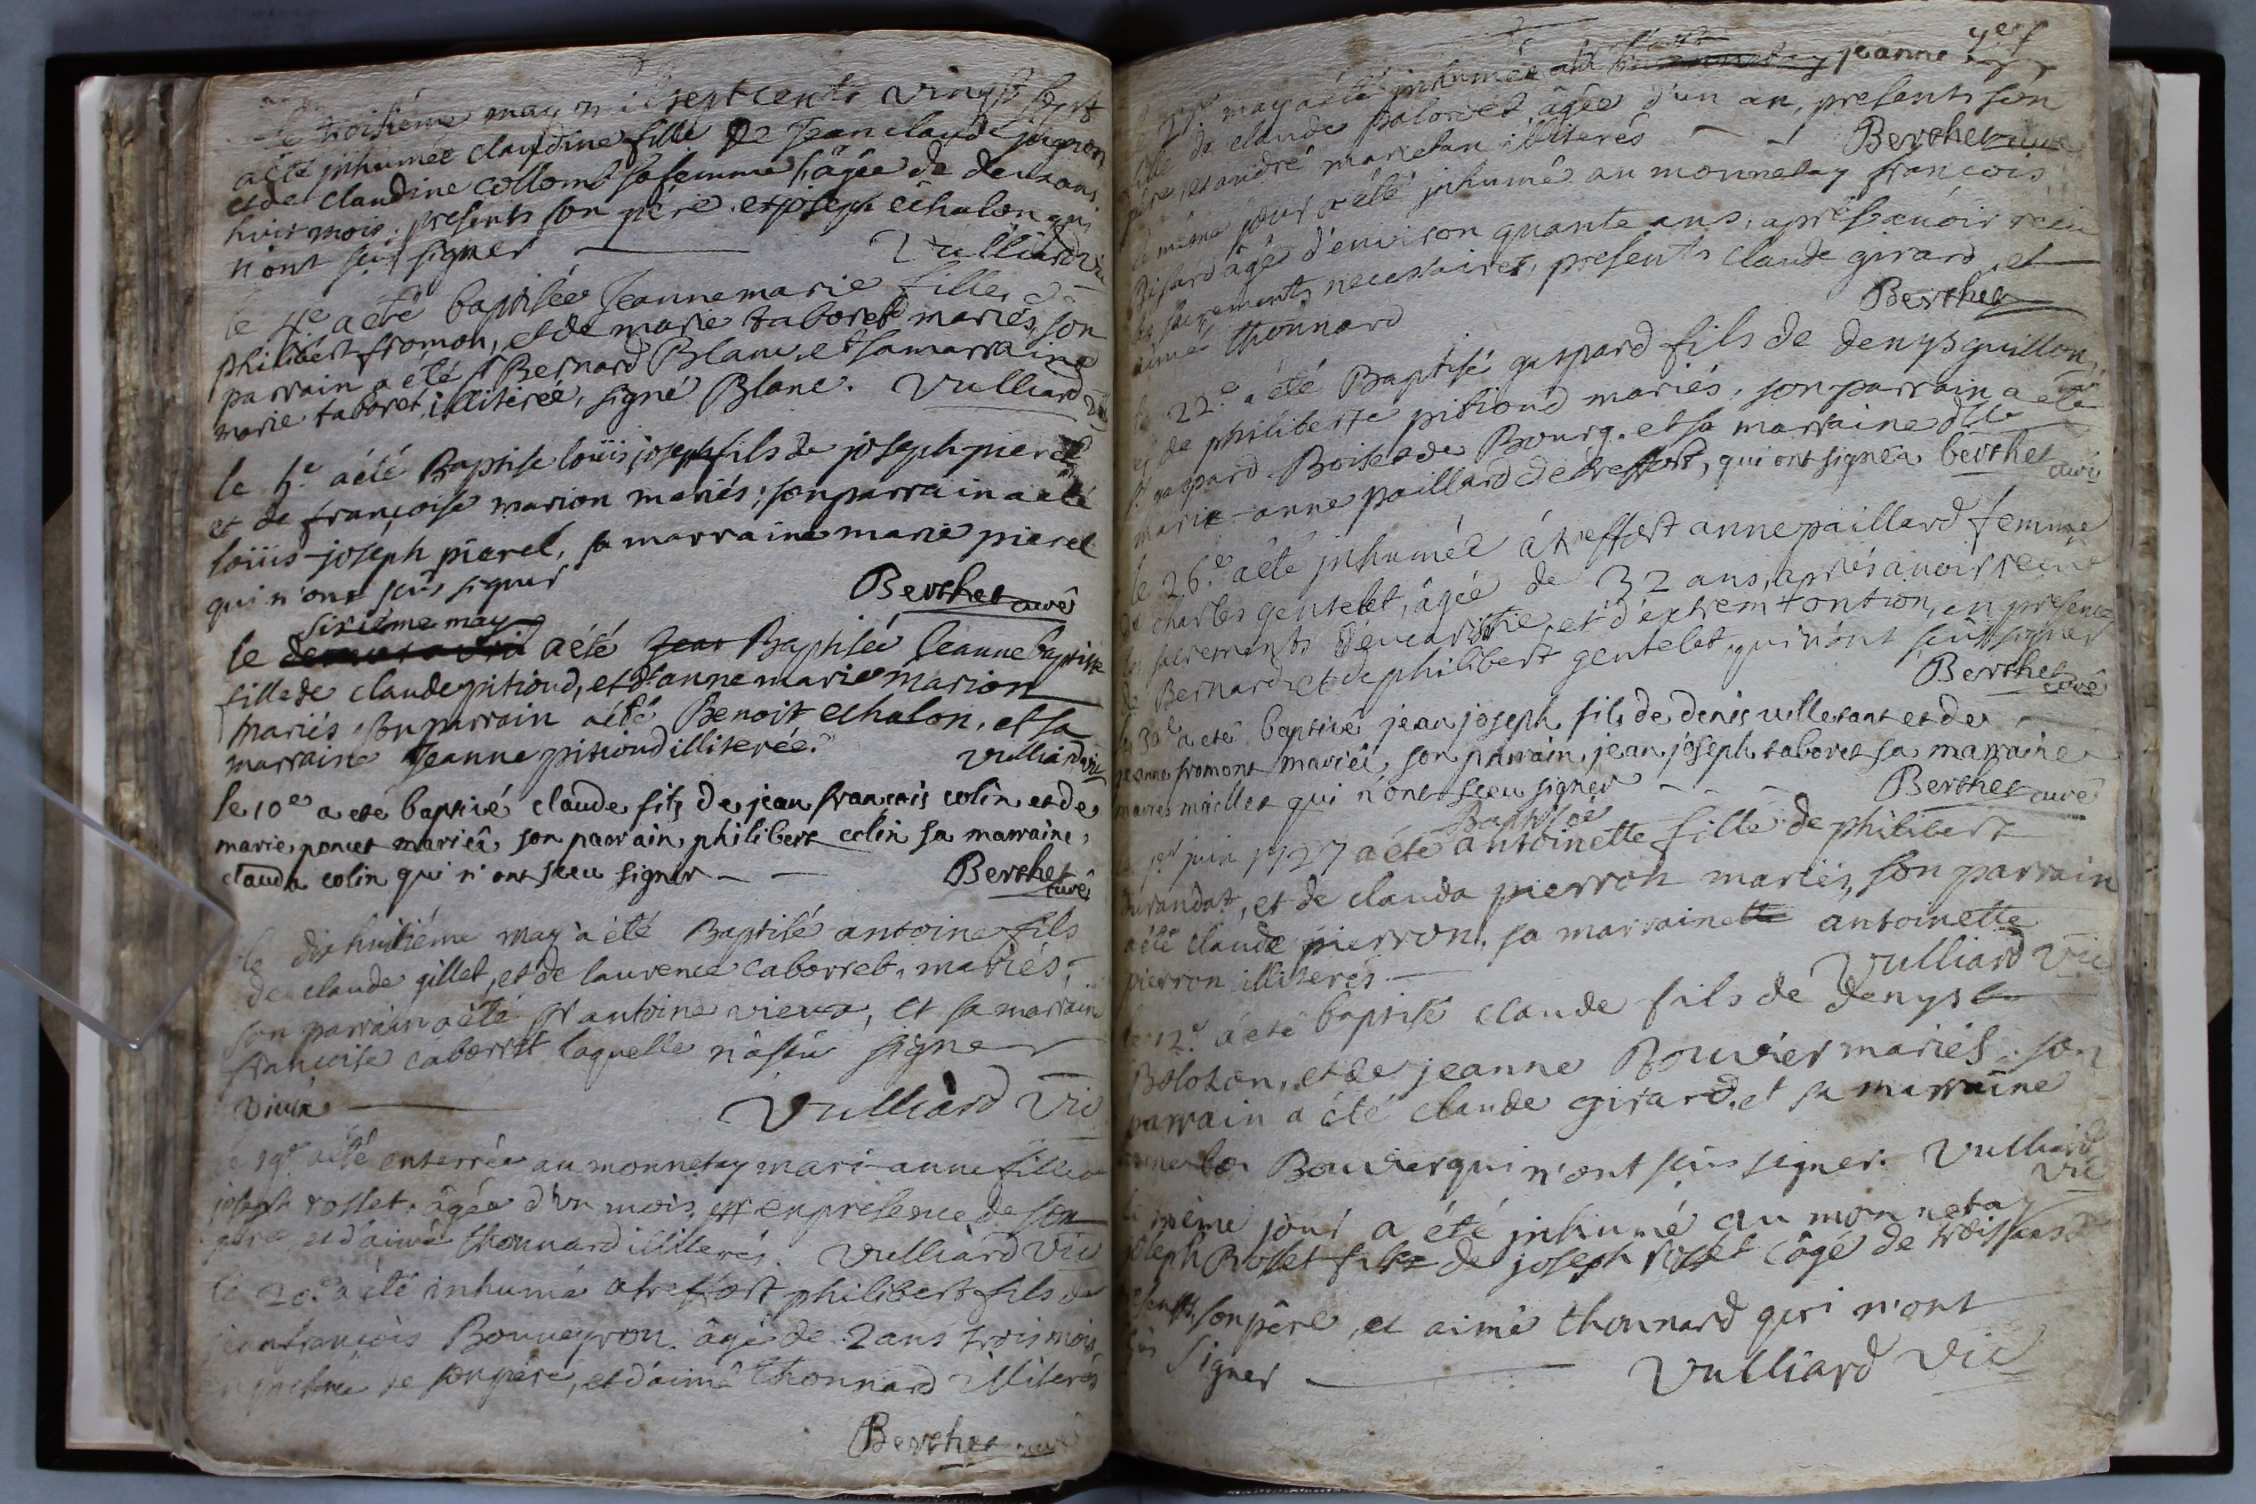 le troisième may mil sept cents vingt sept
a été inhumée claudine fille de Jean claude
et de claudine collomb sa femme âgée de deux ans
huit mois, presents son père, et joseph êchalon qui
n'ont seu signer Vulliard vic
le 4e a été baptisée Jeanne marie fille de
philibert fromon, et de marie taboret mariés, son
parrain a été sr Bernard Blanc, et sa marraine
marie taboret, illiterée, signé Blanc. Vulliard vic
le 5.e a été Baptisé loüis joseph fils de joseph pierel
et de françoise marion mariés; son parrain a été
loüis-joseph pierel, sa marraine marie pierel
qui n'ont seus signer Berthet curé
sixième may
le a été Jean Baptisée Jeanne baptiste
fille de claude pitioud, et d'anne marie marion
mariés, son parrain a été Benoit echalon, et sa
marraine Jeanne pitioud illiterée. Vulliard vic
le 10e a eté baptisé claude fils de jean francois colin et de
marie poncet mariéz, son parrain philibert colin sa marraine
clauda colin qui n'ont sceu signer Berthet
curé
le dix huitiéme may a été Baptisé antoine fils
de claude gillet, et de laurence caborret, mariés,
son parrain a été sr antoine vieux, et sa marraine
françoise caborret laquelle n'a seu signer
vieux Vulliard Vic
le 19e a été enterrée au monnetay mari-anne fille de
joseph rosset, âgée d'un mois, en presence de son
père, et d'aimé thonnard illiterés. Vulliard Vic
le 20.e a été inhumé a treffort philibert fils de
jean françois Bonneyron âgé de 2 ans trois mois
de son père, et d'aimé thonnard illiterés
Berthet curé
may a été inhumée jeanne
fille de claude âgée d'un an, presents son
père, et andré illiterés Berthet curé
le même jour a été inhumé au monnetay françois
âgé d'environ quarante ans, aprés avoir reçu
les sacrements necessaires, presents claude girard, et
aimé thonnard Berthet
le 22.e a été Baptisé gaspard fils de denys guillon,
et de philiberte pitioud mariés, son parrain a été
sr gaspard Boisson de Bourg. et sa marraine dlle
marie-anne paillard de treffort, qui ont signéz berthet curé
le 26.e a été inhumée á treffort anne paillard femme
de charles gentelet, âgée de 32 ans, aprés avoir receu
les sacrements d'eucaristie, et d'extrem tontion, en presence
de Bernard, et de philibert gentelet, qui n'ont seus signer
Berthet
curé
le 30e a eté baptisé jean joseph fils de denis et de
jeanne fromont mariéz, son parrain jean joseph taboret sa marraine
qui n'ont sceu signer Berthet curé
Baptisée
1er juin 1727 a été antoinette fille de philibert
durandat, et de clauda pierron mariés, son parrain
a été claude pierron, sa marraine antoinette
pierron illiterés Vulliard Vic
le 12.e a eté baptisé claude fils de denys
Bolozon, et de jeanne Bouvier mariés. son
parrain a été claude girard, et sa marraine
Bouvier qui n'ont seus signer. Vulliard
Vic
le même jour a été inhumé au monnetay
joseph Rosset fils de joseph rosset âgé de trois ans
presents son père, et aimé thonnard qui n'ont
seus signer Vulliard Vic